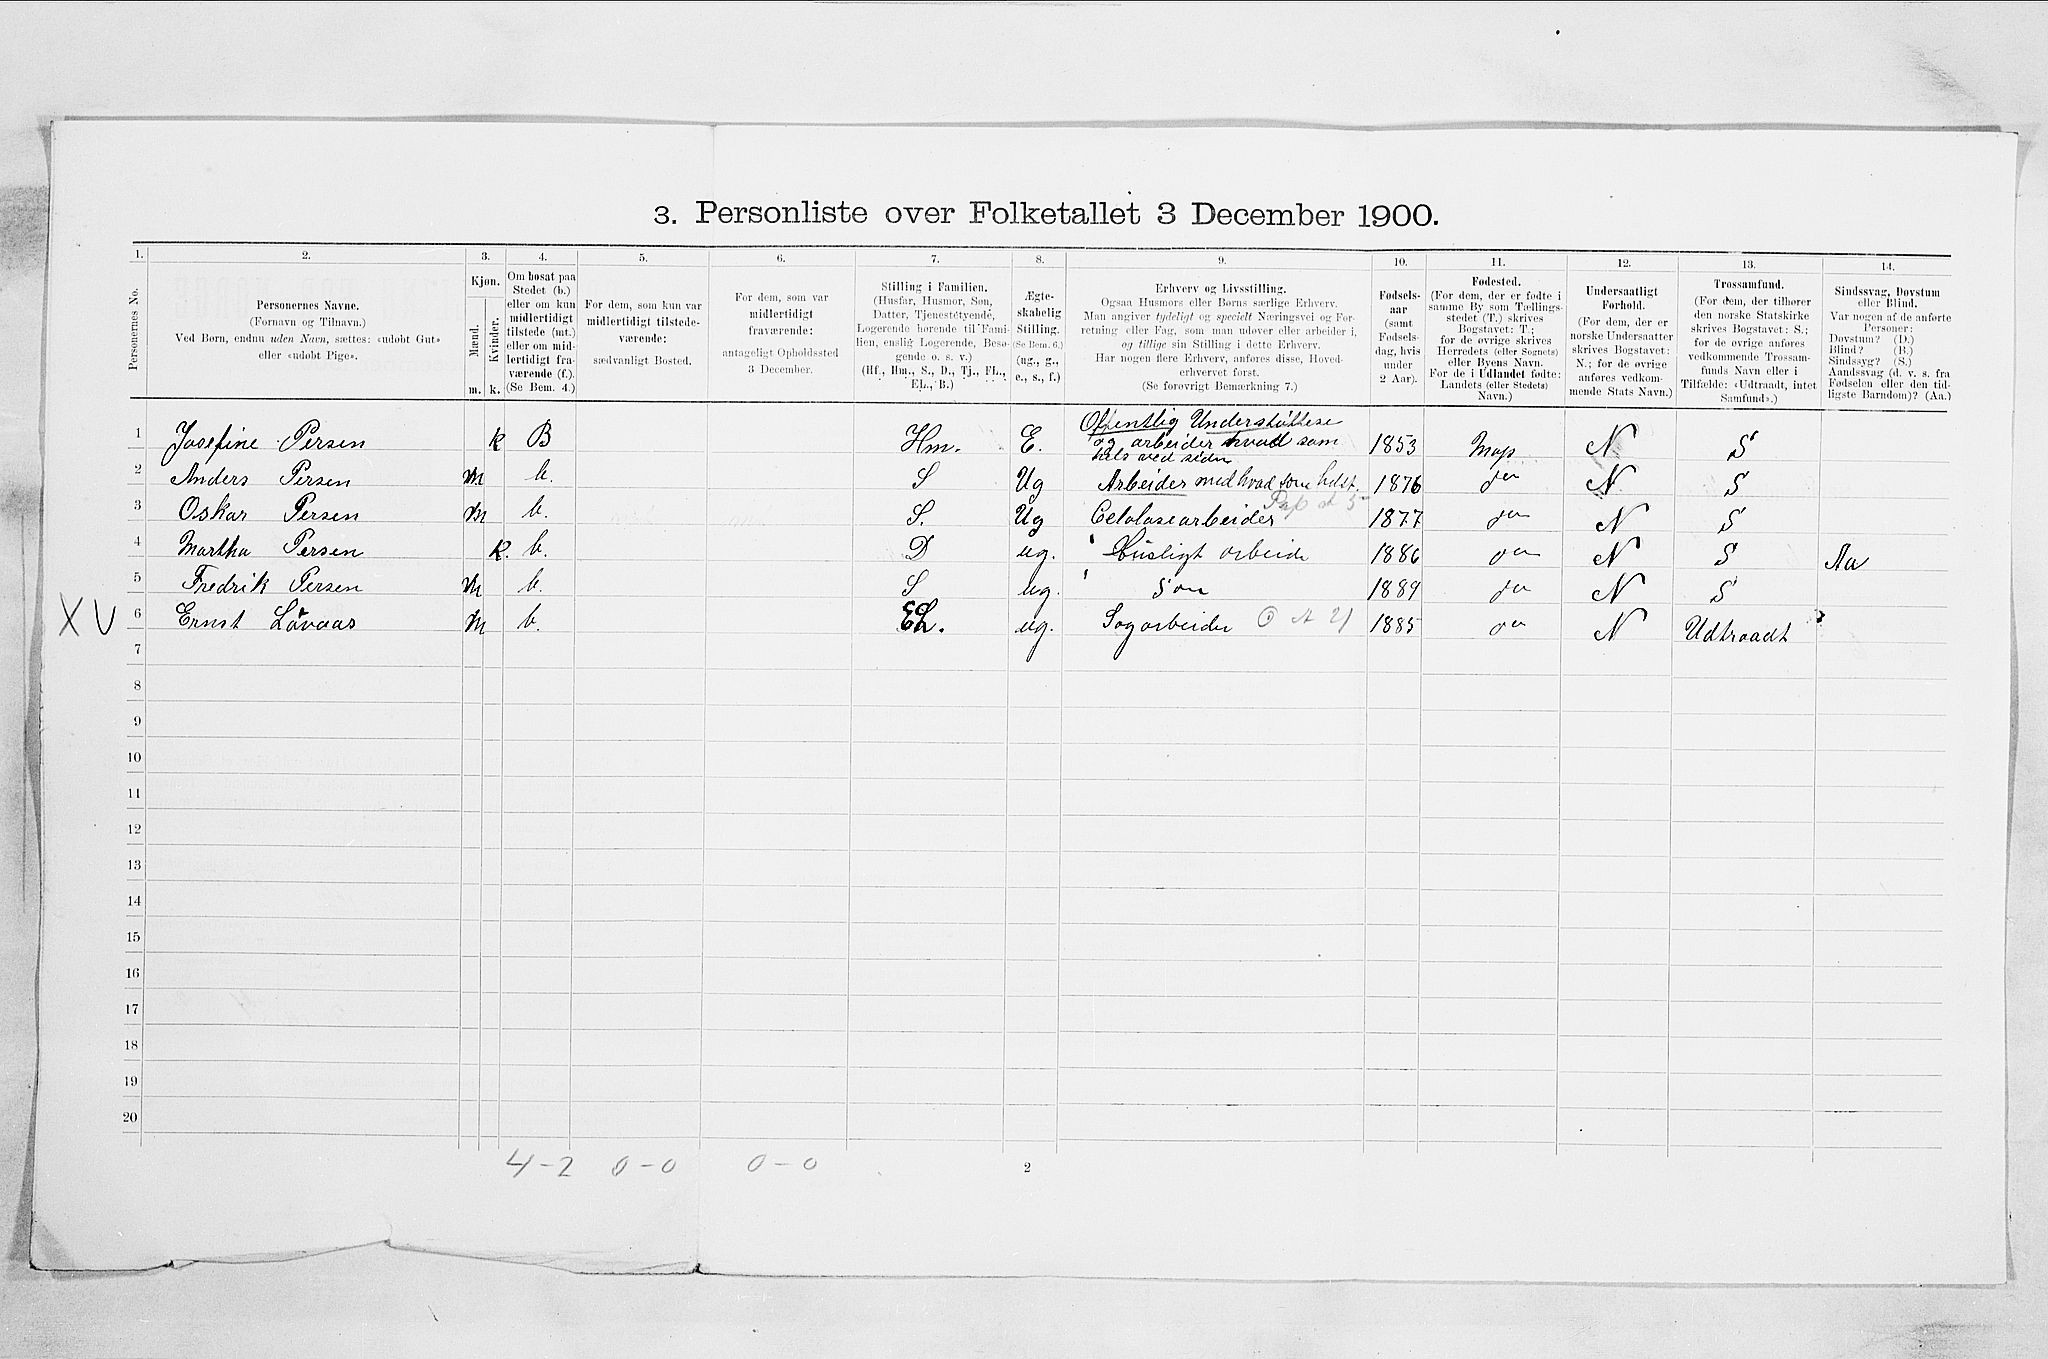 3. Personliste over Folketallet 3 December 1900.
1. 2. 3. 4. 5. 6. 7. 8. 9. 10. 11. 12. 13. 14.
Personernes No.
Personernes Navne.
(Fornavn og Tilnavn.)
Ved Børn, endnu uden Navn, sættes: «udøbt Gut»
eller «udøbt Pige».
Kjøn.
Mænd.
Kvinder.
m. k.
Om bosat paa
Stedet (b.)
eller om kun
midlertidigt
tilstede (mt.)
eller om mid-
lertidigt fra-
værende (f.).
(Se Bem. 4.)
For dem, som kun var
midlertidigt tilstede-
værende:
sædvanligt Bosted.
For dem, som var
midlertidigt
fraværende:
antageligt Opholdssted
3 December.
Stilling i Familien.
(Husfar, Husmor, Søn,
Datter, Tjenestetyende,
Logerende hørende til Fami-
lien, enslig Logerende, Besø-
gende o. s. v.)
(Hf., Hm., S., D., Tj., FL.,
EL., B.)
Ægte-
skabelig
Stilling.
(Se Bem. 6.)
(ug., g.,
e., s., f.)
Erhverv og Livsstilling.
Ogsaa Husmors eller Børns særlige Erhverv.
Man angiver tydeligt og specielt Næringsvei og For-
retning eller Fag, som man udøver eller arbeider i,
og tillige sin Stilling i dette Erhverv.
Har nogen flere Erhverv, anføres disse, Hoved-
erhvervet først.
(Se forøvrigt Bemærkning 7.)
Fødsels-
aar
(samt
Fødsels-
dag, hvis
under
2 Aar).
Fødested.
(For dem, der er fødte i
samme By som Tællings-
stedet (T.) skrives
Bogstavet: T.;
for de øvrige skrives
Herredets (eller Sognets)
eller Byens Navn.
For de i Udlandet fødte:
Landets (eller Stedets)
Navn.)
Undersaatligt
Forhold.
(For dem, der er
norske Undersaatter
skrives Bogstavet:
N.; for de øvrige
anføres vedkom-
mende Stats Navn.)
Trossamfund.
(For dem, der tilhører
den norske Statskirke
skrives Bogstavet: S.;
for de øvrige anføres
vedkommende Trossam-
funds Navn eller i
Tilfælde: «Udtraadt, intet
Samfund».)
Sindssvag, Døvstum
eller Blind.
Var nogen af de anførte
Personer:
Døvstum? (D.)
Blind? (B.)
Sindssyg? (S.)
Aandssvag (d. v. s. fra
Fødselen eller den tid-
ligste Barndom)? (Aa.)
1 Josefine Persen k B Hm. E. Offentlig Understøttese
og arbeider hvad som
hels ved siden 1853 Moss N S
2 Anders Persen m b. S Ug Arbeider med hvad som helst. 1876 N S
3 Oskar Persen m b. S. Ug Celolosearbeider 1877 N S
4 Martha Persen k. b. D ug. Husligt arbeide 1886 N S Aa
5 Fredrik Persen m b. S ug. Søn 1889 N S
XV 6 Ernst Løvaas m b. EL. ug. Sagarbeider 1885 N Udtraadt
7
8
9
10
11
12
13
14
15
16
17
18
19
20
4 - 2 0 - 0 0 - 0
2